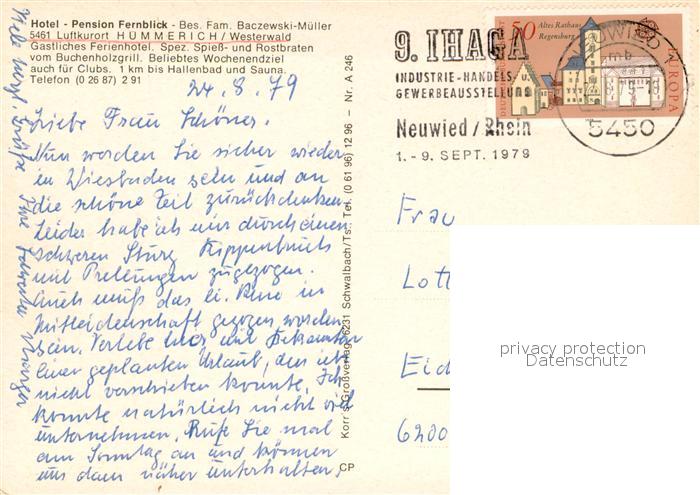 Hotel - Pension Fernblick - Bes. Fam. Baczewski-Müller
5461 Luftkurort HÜMMERICH / Westerwald
Gastliches Ferienhotel. Spez. Spieß- und Rostbraten
vom Buchenholzgrill. Beliebtes Wochenendziel
auch für Clubs. 1 km bis Hallenbad und Sauna.
Telefon (0 26 87) 2 91
24.8.79
Liebe Frau Schöner.
Nun werden Sie sicher wieder
in Wiesbaden sein und an
die schöne Zeit zurückdenken.
Leider habe ich mir durch einen
schweren Sturz Rippenbruch
und Prellungen zugezogen.
Auch muß das li. Knie in
Mitleidenschaft gezogen worden
sein. Verlebe hier mit Bekannten
einen geplanten Urlaub, den ich
nicht verschieben konnte. Ich
konnte natürlich nicht viel
unternehmen. Rufe Sie mal
am Sonntag an und können
uns dann näher unterhalten.
Viele herzl. Grüße Ihre
Korr's Großverlag, 6231 Schwalbach/Ts., Tel. (0 61 96) 12 96 - Nr. A 246
CP
9. IHAGA
INDUSTRIE-HANDELS- u.
GEWERBEAUSSTELLUNG
Neuwied / Rhein
1. - 9. SEPT. 1979
50 Altes Rathaus
Regensburg
EUROPA
NEUWIED
mb
5450
Frau
Lott
Eid
6200
privacy protection
Datenschutz